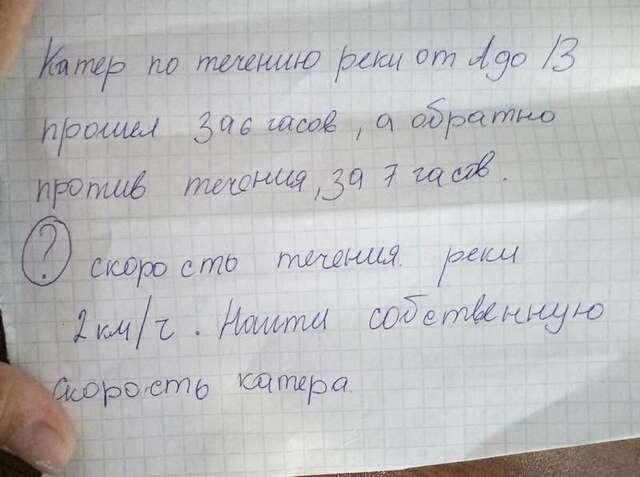 Катер по течению реки от А до В
прошел за 6 часов, а обратно
против течения, за 7 часов.
? скорость течения реки
2км/ч. Найти собственную
скорость катера